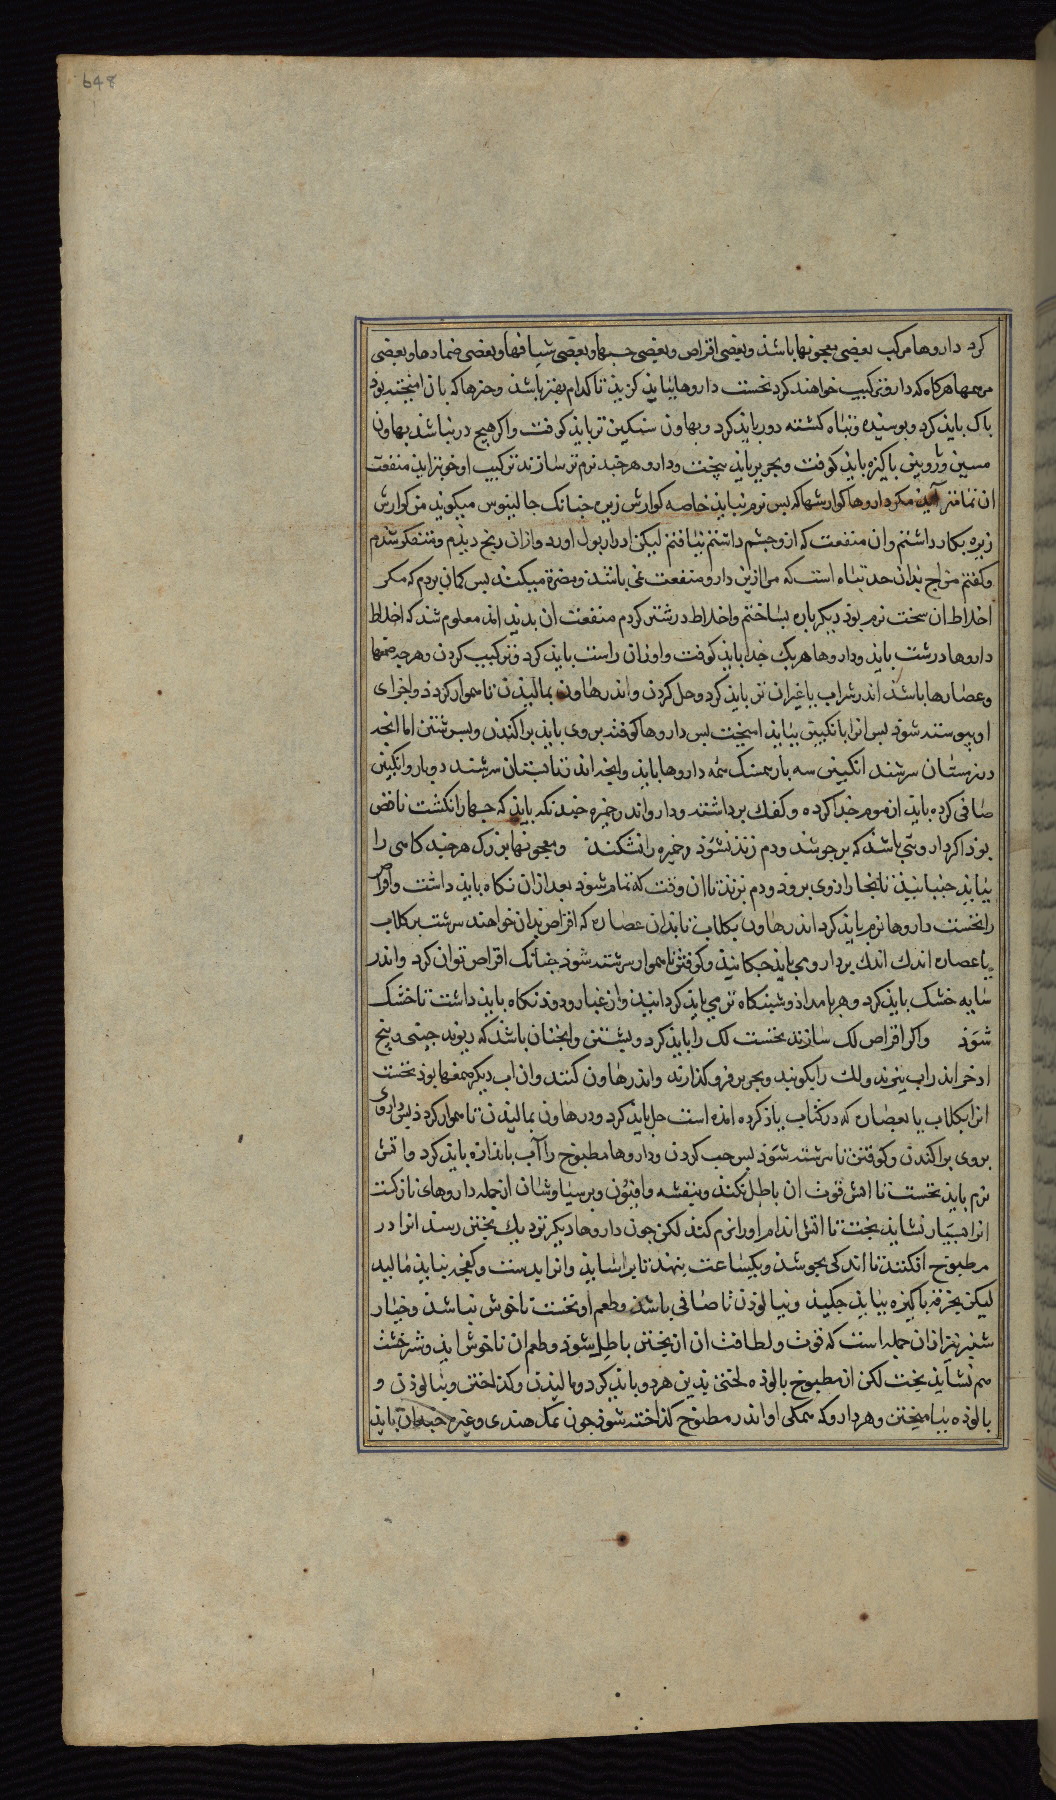 648
کرد داروها مرکب بعضی معجونها باشذ و بعضی اقراص و بعضی حبها و بعضی شیافها و بعضی ضمادها و بعضی
مرهمها هرکاه که دارو ترکیب خواهند کرد نخست داروها بباید کزیذ تا کدام بهتر باشذ و چیزها که بان امیخته بوذ
باک بایذ کرد و بوسیده و تباه کشته دور بایذ کرد و بهاون سنکین تر بایذ کوفت و اکر هیچ در نباشد بهاون
مسین و رویین باکیزه بایذ کوفت و بحریر بایذ بیخت و دارو هرچند نرم تر سازند ترکیب او خوبتر ایذ منفعت
ان تمامتر آید مکر داروها کوارشها که بس نرم نبایذ خاصه کوارش زیره جنانک جالینوس میکویذ من کوارش
زیره بکار داشتم و ان منفعت که ازو جشم داشتم نیافتم لیکن ادرار بول اورد و ازان رنج دیذم و متفکر شذم
و کفتم مزاج بدان حد تباه است که مرا ازین دارو منفعت نمی باشذ و مضرة میکند بس کمان بردم که مکر
اخلاط ان سخت نرم بوذ دیکر باره بساختم و اخلاط درشتر کردم منفعت ان بدید امد معلوم شد که اخلاط
داروها درشت بایذ و داروها هر یک جذا بایذ کوفت و اوزان راست بایذ کرد و ترکیب کردن و هرچه صمغها
و عصارها باشذ اندر شراب یا غیر ان تر بایذ کرد و حل کردن و اندر هاون بمالیذن تا هموار کردذ و اجزای
او بیوسته شوذ بس انرا بانکبین بباید امیخت بس داروها کوفته بروی بایذ براکندن و بسرشتن اما انچه
در زمستان سرشند انکبین سه بار همسنک همه داروها بایذ و انچه اندر تابستان سرشند دو بار و انکبین
صافی کرده بایذ از موم جذا کرده و کفک برداشته و دارو اندر خمره چندنکه بایذ که جهار انکشت ناقص
بوذ اکر داروی باشذ که برجوشد و دم زند نشوذ و خمره را نشکند و معجونها بزرک هرچند کاهی را
بباید جنبانیذن تا بخار از وی بروذ و دم بزند تا ان وقت که تمام شوذ بعد ازان نکاه بایذ داشت و اقراص
را نخست داروها نرم بایذ کرد اندر هاون بکلاب تا بدان عصاره که اقراص بدان خواهند سرشت بر کلاب
یا عصاره اندک اندک بر داروی بایذ جکانیذ و کوفتن تا هموار سرشته شوذ جنانک اقراص توان کرد و اندر
سایه خشک بایذ کرد و هر بامداذ و شبنکاه تر می بایذ کردانیذن و از غبار و دوذ نکاه بایذ داشت تا خشک
شوذ و اکر اقراص لک سازند نخست لک را بایذ کرد و بشستن و انجنان باشذ که ریوند جینی و بیخ
اذخر اندر اب بیزند و لک را بکویند و بحریر فرو کذارند و اندر هاون کنند و ان اب دیکر صمغها بوذ نخست
انرا بکلاب یا بعصاره که در کتاب یاذ کرده امده است حل بایذ کرد و در هاون بمالیذن تا هموار کردذ بس داروی
بروی براکندن و کوفتن تا سرشته شوذ بس حب کردن و داروها مطبوخ را آب باندازه بایذ کرد و آتش
نرم بایذ نخست تا اتش قوت ان باطل نکند و بنفشه و افتیمون و برسیاوشان از جمله داروهای نازکست
انرا بسیار نشایذ بخت تا اتش اندام او را نرم کند لکن جون داروها دیکر نزدیک بختن رسذ انرا در
مطبوخ افکنند تا اندکی بجوشذ و یکساعت بنهند تا براسایذ و انرا بدست و کفجه نبایذ مالید
لیکن بخرقه باکیزه بباید جکیذ و نیالوذن تا صافی باشذ و طعم او نخست ناخوش نباشذ و خیار
شنبر نیز ازان جمله است که قوت و لطافت ان از بختن باطل شوذ و طعم ان ناخوش ایذ و شرخشت
هم نشایذ بخت لکن از مطبوخ بالوذه لختی بدین هر دو بایذ کرد و مالیذن و کذاختن و نیالوذن و
بالوذه بیامیختن و هر دارو که همکی او اندر مطبوخ کذاخته شوذ جون نمک هندی و غیره جندان بایذ